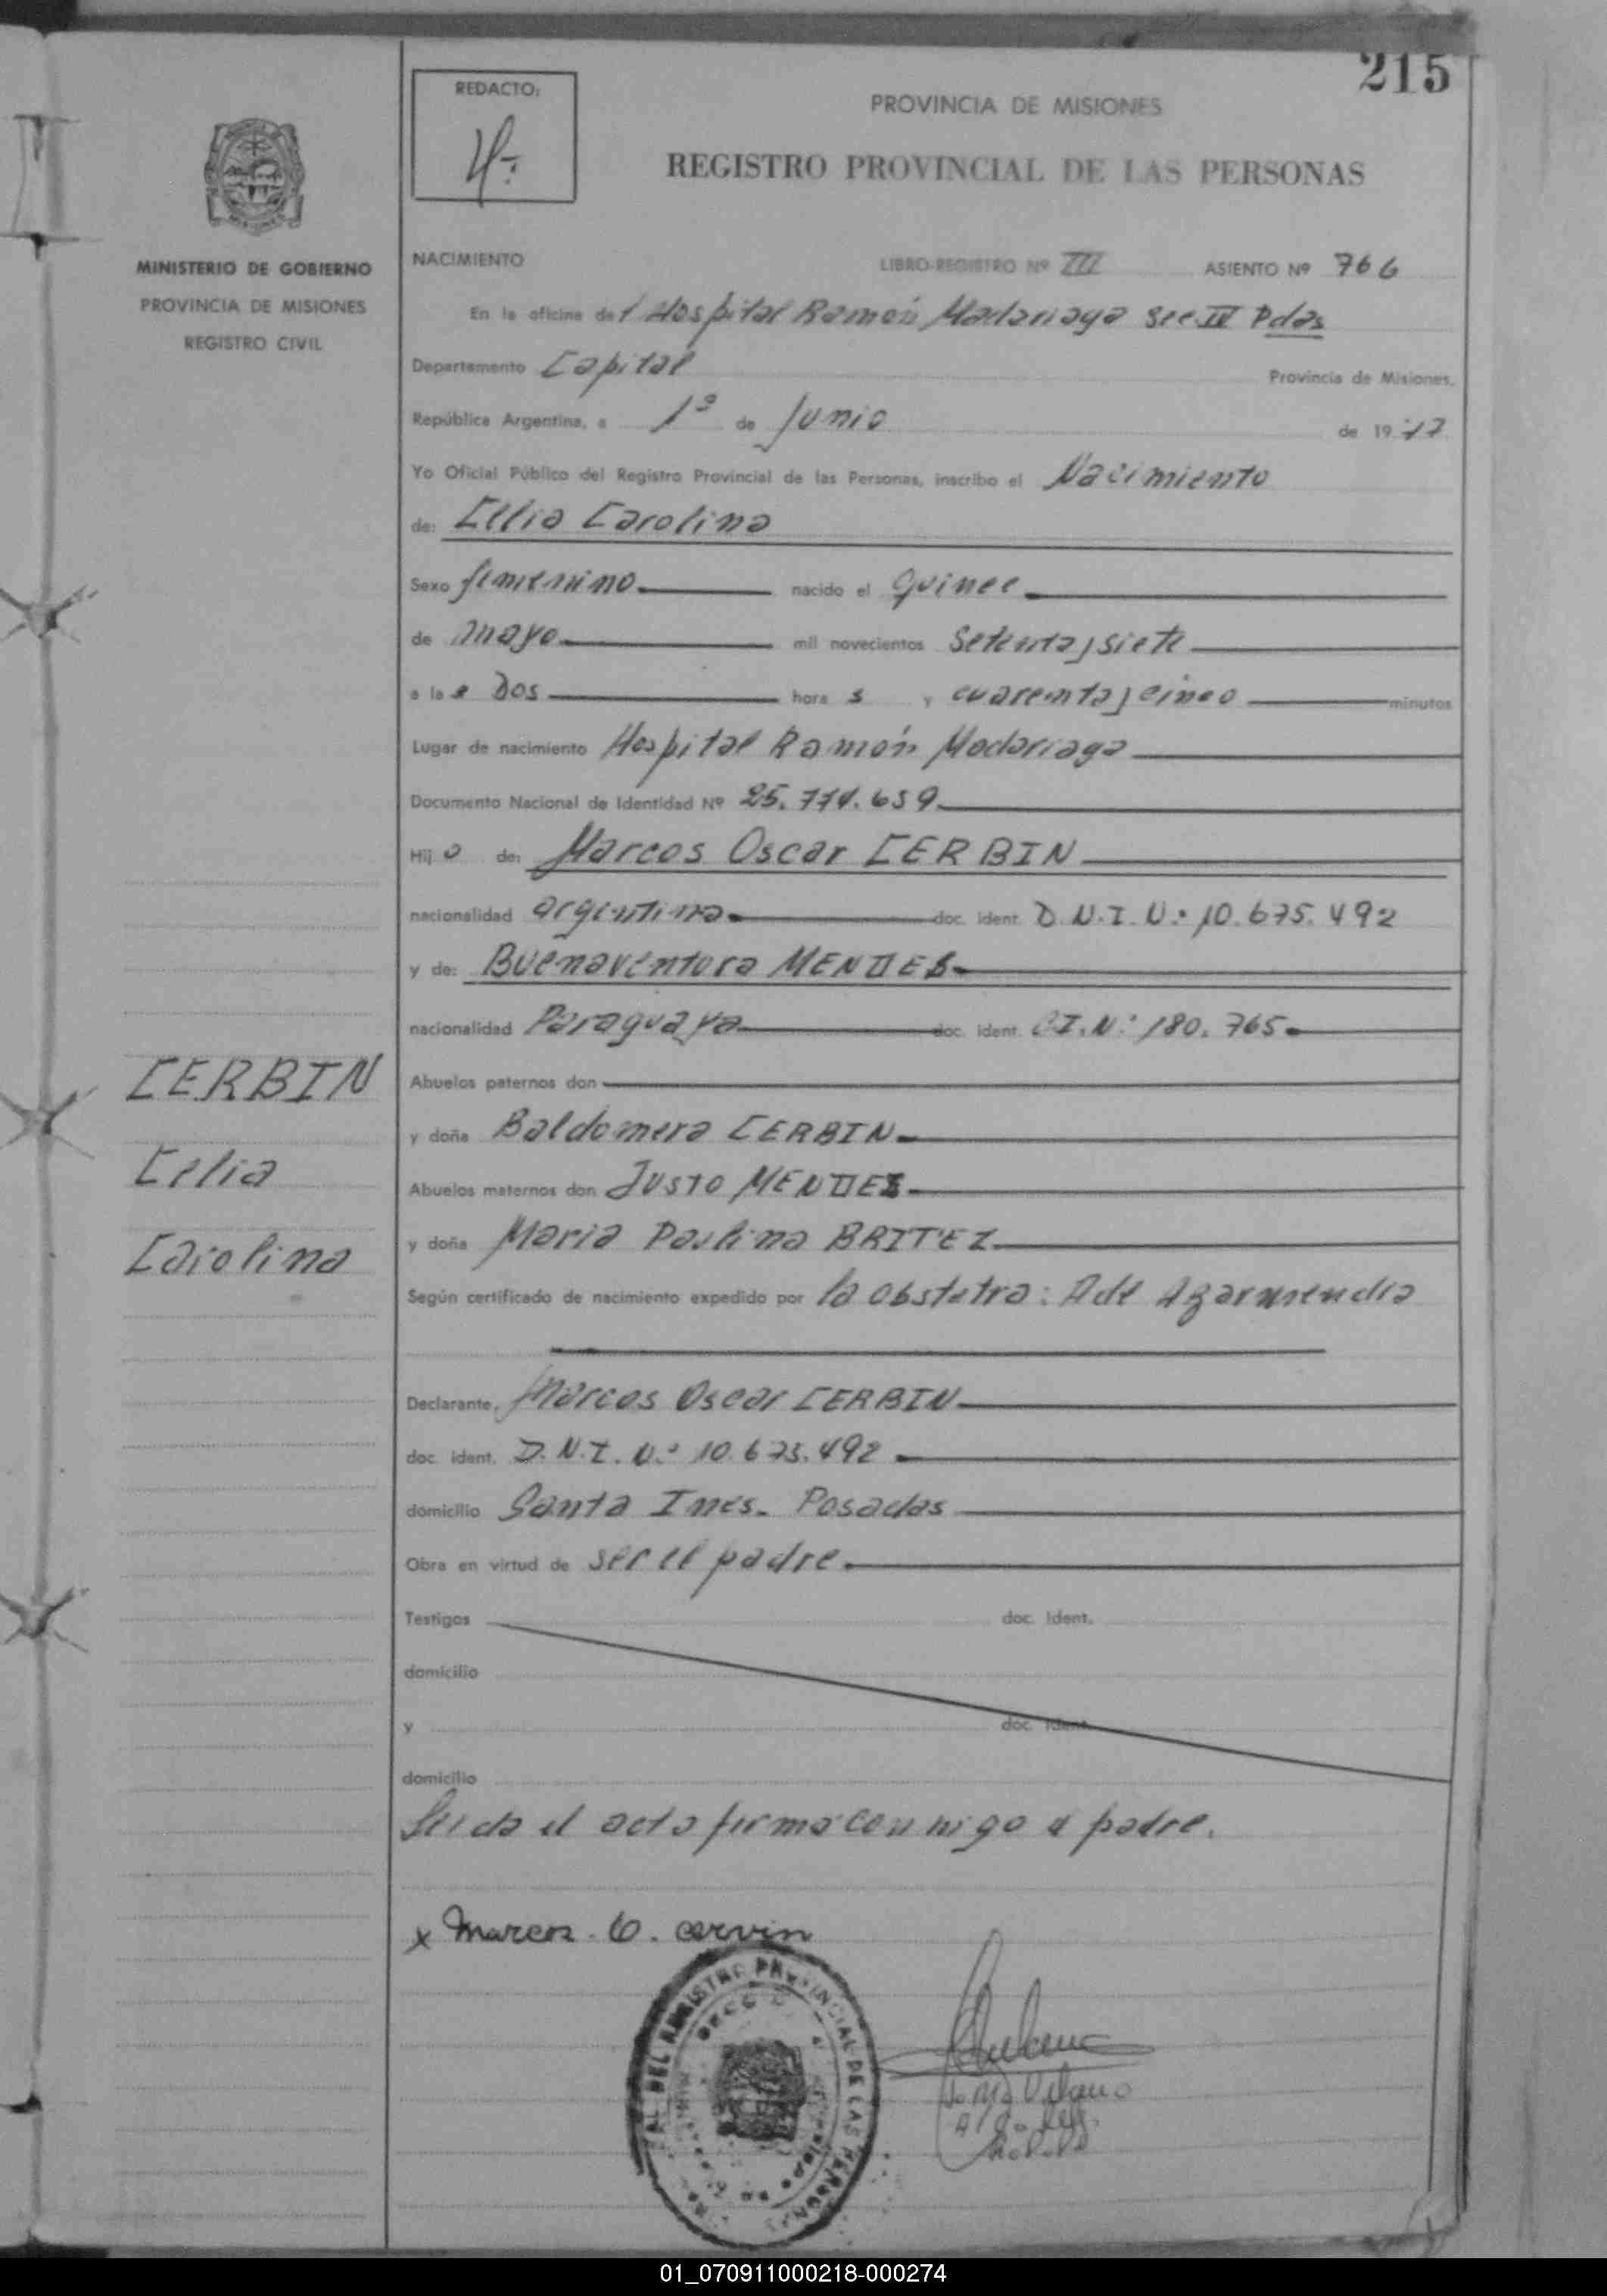 215
REDACTO:
PROVINCIA DE MISIONES
REGISTRO PROVINCIAL DE LAS PERSONAS
MINISTERIO DE GOBIERNO
PROVINCIA DE MISIONES
REGISTRO CIVIL
NACIMIENTO LIBRO-REGISTRO Nº III ASIENTO Nº 766
En la oficina del Hospital Ramón Madariaga Sec IV Pdas
Departamento Capital Provincia de Misiones,
República Argentina, a 1º de Junio de 1977
Yo Oficial Público del Registro Provincial de las Personas, inscribo el Nacimiento
de: Celia Carolina
Sexo femenino nacido el quince
de mayo mil novecientos setenta y siete
a las Dos horas y cuarenta y cinco minutos
Lugar de nacimiento Hospital Ramón Madariaga
Documento Nacional de Identidad Nº 25.774.659
Hija de: Marcos Oscar CERBIN
nacionalidad argentina doc. ident. D.N.I.Nº 10.675.492
y de: Buenaventura MENDES
nacionalidad Paraguaya doc. ident. C.I.Nº 180.765
Abuelos paternos don
y doña Baldomera CERBIN
Abuelos maternos don Justo MENDES
y doña Maria Paulina BRITEZ
Según certificado de nacimiento expedido por la obstetra: Ade Azarmendia
Declarante, Marcos Oscar CERBIN
doc. ident. D.N.I. Nº 10.675.492
domicilio Santa Ines. Posadas
Obra en virtud de ser el padre.
Testigos doc. Ident.
domicilio
y doc. Ident.
domicilio
Leida el acta firma conmigo el padre.
x Marcos O. cervin
CERBIN
Celia
Carolina
DEL REGISTRO PROVINCIAL DE LAS PERSONAS
01_070911000218-000274